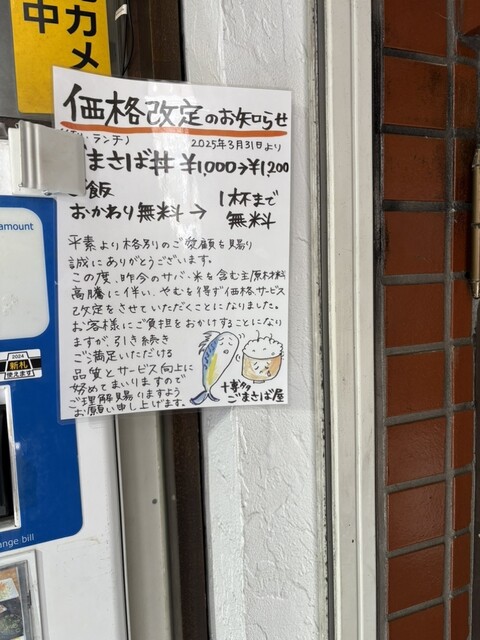 カメ
中
価格改定のお知らせ
ランチ)
2025年3月31日より
まさば丼 ¥1,000→¥1,200
飯
おかわり無料→ 1杯まで
無料
平素より格別のご愛顧を賜り
誠にありがとうございます。
この度、昨今のサバ・米を含む主原材料
高騰に伴い、やむを得ず価格、サービス
改定をさせていただくことになりました。
お客様にご負担をおかけすることになり
ますが、引き続き
ご満足いただける
品質とサービス向上に
努めてまいりますので
ご理解賜りますよう
お願い申し上げます。
博多
ごまさば屋
amount
2024
新札
使えます
ange.bill